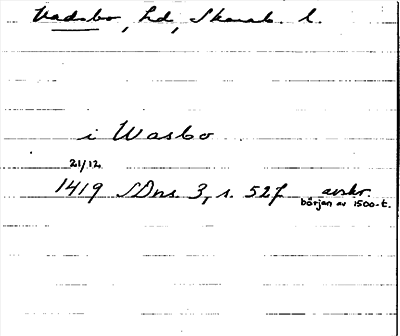 Vadsbo, hd, Skarab. l.
i Wasbo
21/12
1419 SDns. 3, s. 527 avskr.
början av 1500-t.